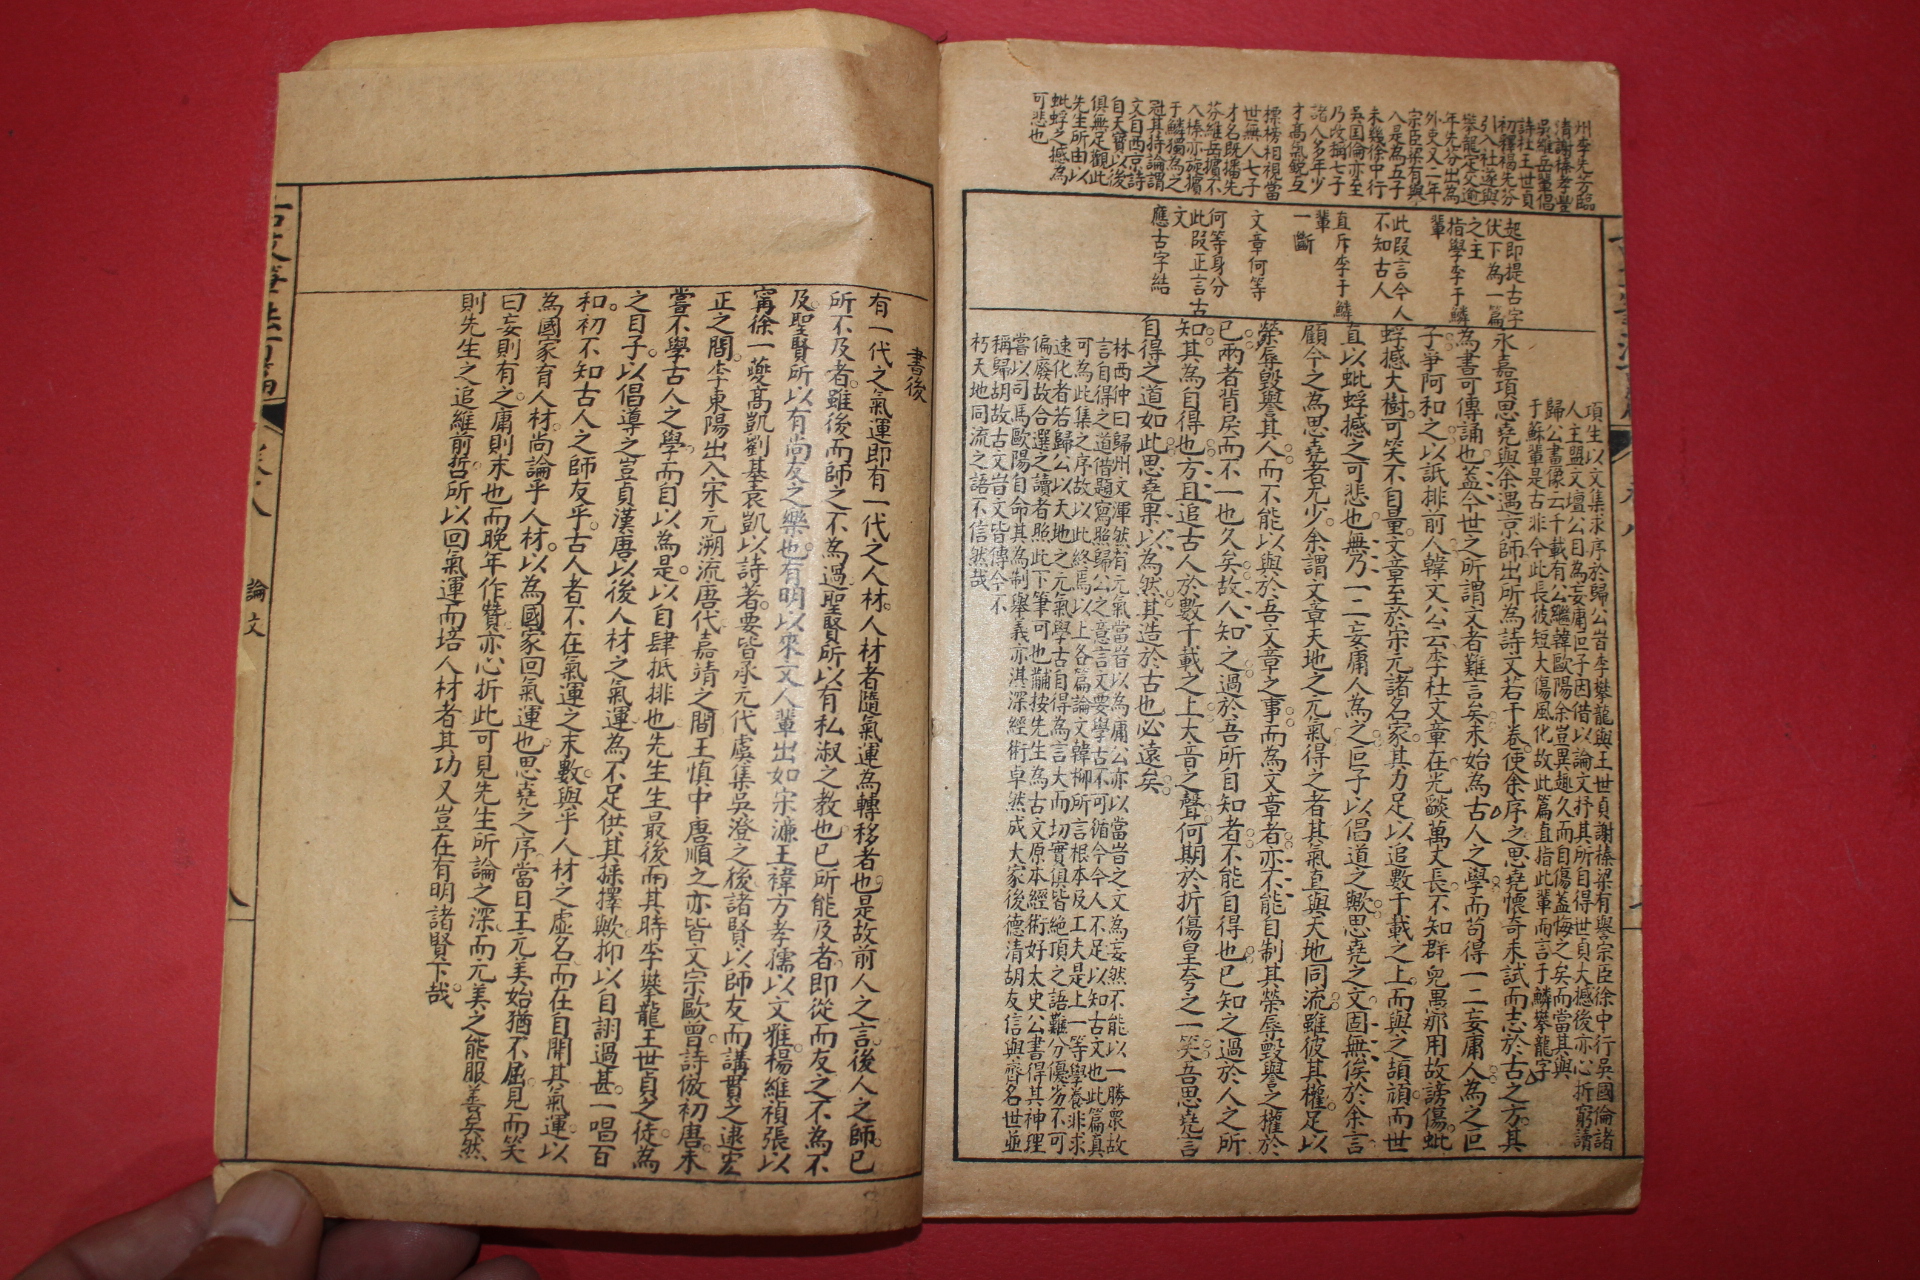 州李先芳臨
清謝榛孝豐
吳維岳輩倡
詩社王世貞
初釋褐先芬
引入社遂與
攀龍定交逾
年先芬出為
外吏又二年
宗臣梁有與
入是為五子
未幾徐中行
吳国倫亦至
乃改稱七子
諸人多年少
才高氣銳互
標榜相視當
世無人七子
才名既播先
芬維岳擯不
入榛亦旋擯
于鱗獨為之
冠其持論謂
文自西京詩
自天寶以後
俱無足觀此
先生所由以
蚍蜉之撼為
可悲也
起即提古字
伏下為一篇
之主
指學李于鱗
輩
此段言今人
不知古人
直斥李于鱗
輩
一斷
文章何等
何等身分
此段正言古
文
應古字結
項生以文集求序於歸公昔李攀龍與王世貞謝榛梁有譽宗臣徐中行吳國倫諸
人主盟文壇公目為妄庸巨子因借以論文抒其所自得世貞大撼後亦心折窮讀
歸公畫像云千載有公繼韓歐陽余豈異趣久而自傷蓋悔之矣而當其與
于蘇輩是古非今此長彼短大傷風化故此篇直指此輩而言于鱗攀龍字
永嘉項思堯與余遇京師出所為詩文若干卷使余序之思堯懷奇未試而志於古之方其
為書可傳誦也蓋今世之所謂文者難言矣未始為古人之學而苟得一二妄庸人為之巨
子爭阿和之以詆排前人韓文公云李杜文章在光燄萬丈長不知群兒愚那用故謗傷蚍
蜉撼大樹可笑不自量文章至於宋元諸名家其力足以追數千載之上而與之頡頏而世
直以蚍蜉撼之可悲也無乃一二妄庸人為之巨子以倡道之歟思堯之文固無俟於余言
顧今之為思堯者尤少余謂文章天地之元氣得之者其氣直與天地同流雖彼其權足以
榮辱毀譽其人而不能以與於吾文章之事而為文章者亦不能自制其榮辱毀譽之權於
已兩者背戾而不一也久矣故人知之過於吾所自知者不能自得也已知之過於人之所
知其為自得也方且追古人於數千載之上大音之聲何期於折傷皇夸之一笑吾思堯言
自得之道如此思堯果以為然其造於古也必遠矣
林西仲曰歸州文渾然有元氣當昔以為庸公亦以當昔之文為妄然不能以一勝眾故
言自得之道借題寫照歸公之意言文要學古不可循今今人不足以知古文也此篇真
可為此集之序故以此終焉以上各篇論文韓柳所言根本及工夫是上一等學養非求
速化者若歸公以天地之元氣學古自得為言大而切實俱皆絕頂之語難分優劣不可
偏廢故合選之讀者照此下筆可也黼按先生為古文原本經術好太史公書得其神理
嘗以司馬歐陽自命其為制舉義亦湛深經術卓然成大家後德清胡友信與齊名世並
稱歸胡故古文時文皆傳今不
朽天地同流之語不信然哉
論文
書後
有一代之氣運即有一代之人材人材者隨氣運為轉移者也是故前人之言後人之師已
所不及者雖後而師之不為過聖賢所以有私淑之教也已所能及者即從而友之不為不
及聖賢所以有尚友之樂也有明以來文人輩出如宋濂王褘方孝孺以文雅楊維禎張以
甯徐一夔高凱劉基袁凱以詩著要皆承元代虞集吳澄之後諸賢以師友而講貫之逮宏
正之間李東陽出入宋元溯流唐代嘉靖之間王慎中唐順之亦皆文宗歐曾詩倣初唐未
嘗不學古人之學而自以為是以自肆抵排也先生生最後而其時李攀龍王世貞之徒為
之目子以倡導之豈貞漢唐以後人材之氣運為不足供其採擇歟抑以自詡過甚一唱百
和初不知古人之師友乎古人者不在氣運之末數與乎人材之虛名而在自開其氣運以
為國家育人材尚論乎人材以為國家回氣運也思堯之序當日王元美始猶不屈見而笑
曰妄則有之庸則未也而晚年作贊亦心折此可見先生所論之深而元美之能服善矣然
則先生之追維前哲所以回氣運而培人材者其功又豈在有明諸賢下哉